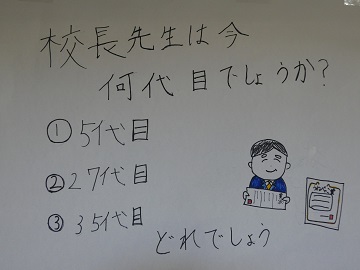 校長先生は今
何代目でしょうか?
① 5代目
② 27代目
③ 35代目
どれでしょう